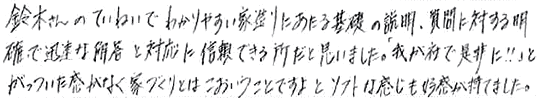 鈴木さんのていねいでわかりやすい家造りにあたる基礎の説明、質問に対する明
確で迅速な解答と対応に信頼できる所だと思いました。「我が社で是非に!!」と
がっついた感がなく家づくりとはこおいうことですよとソフトな感じも好感が持てました。